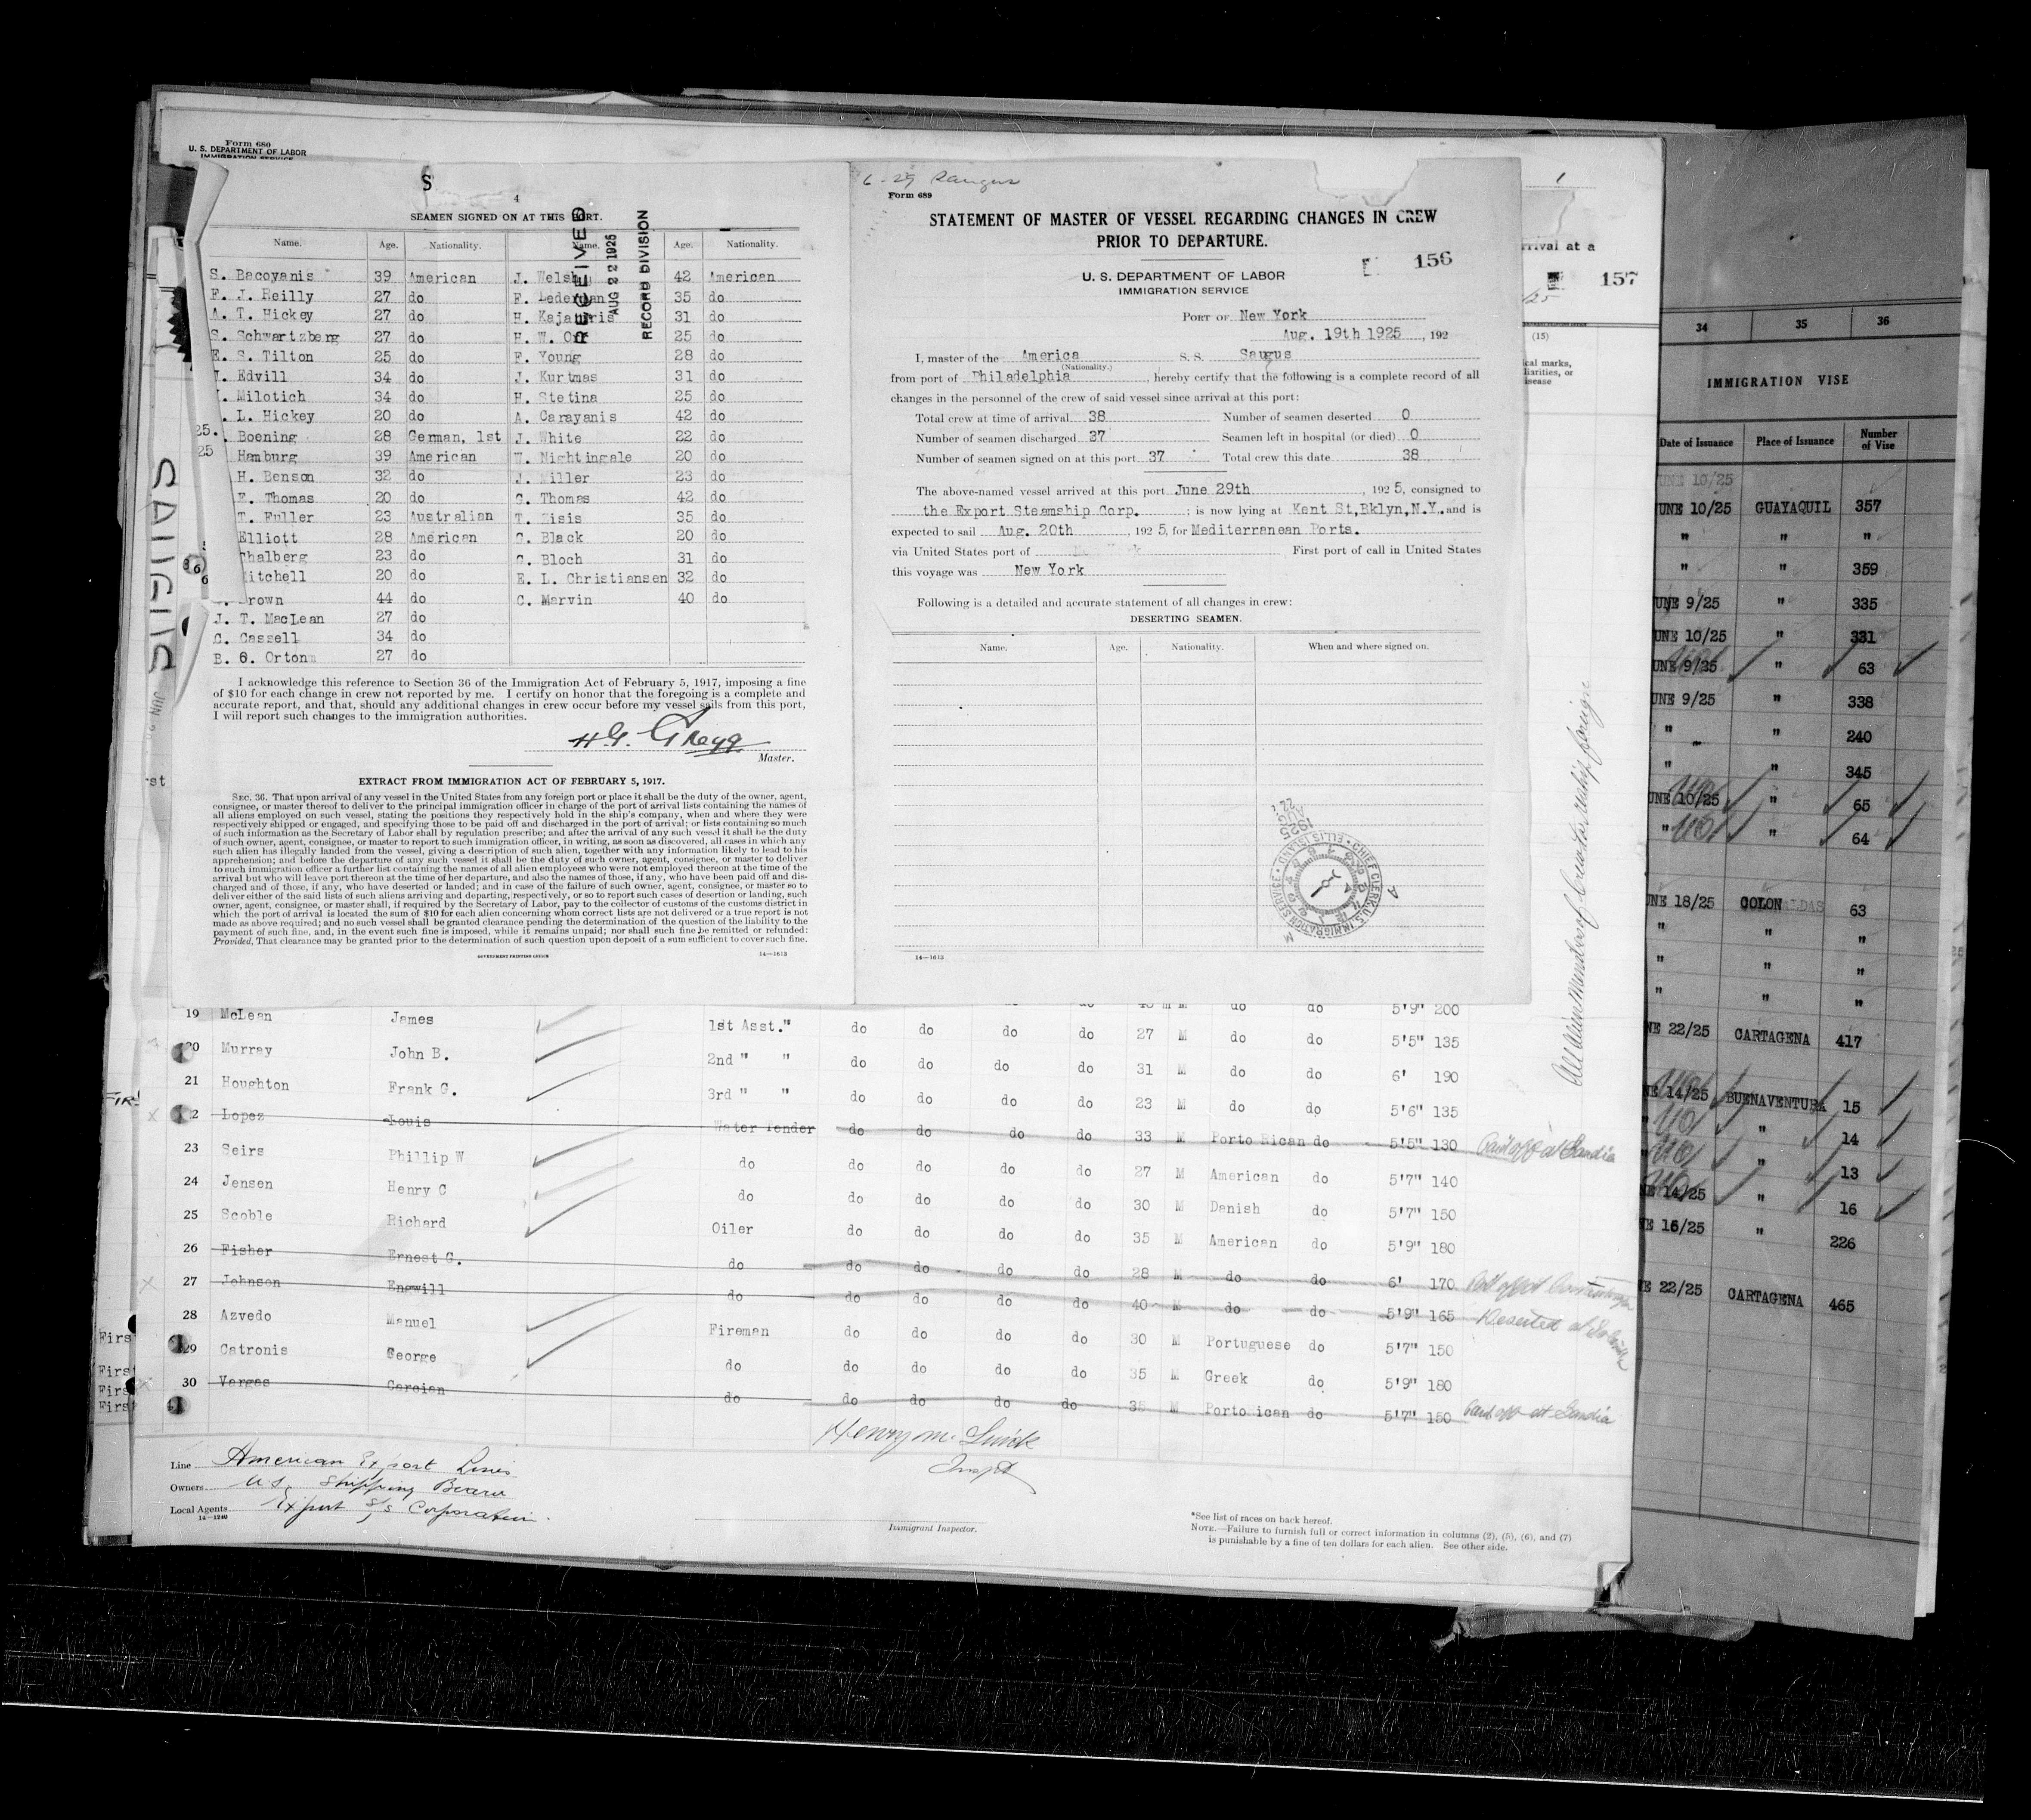 Form 680
U. S. DEPARTMENT OF LABOR
IMMIGRATION SERVICE
S
4
SEAMEN SIGNED ON AT THIS PORT.
RECEIVED
AUG 22 1925
RECORD DIVISION
Name. Age. Nationality. Name. Age. Nationality.
S. Bacoyanis 39 American J. Welsh 42 American
F. J. Reilly 27 do F. Lederman 35 do
A. T. Hickey 27 do H. 31 do
S. Schwartzberg 27 do H. W. 25 do
E. S. Tilton 25 do F. Young 28 do
Edvill 34 do J. Kurtmas 31 do
Milotich 34 do H. Stetina 25 do
L. Hickey 20 do A. Carayanis 42 do
Boening 28 German, 1st J. White 22 do
Hamburg 39 American W. Nightingale 20 do
H. Benson 32 do J. Miller 23 do
F. Thomas 20 do G. Thomas 42 do
T. Fuller 23 Australian T. Zisis 35 do
Elliott 28 American C. Black 20 do
Chalberg 23 do C. Bloch 31 do
Mitchell 20 do E. L. Christiansen 32 do
Brown 44 do C. Marvin 40 do
J. T. MacLean 27 do
C. Cassell 34 do
B. G. Orton 27 do
I acknowledge this reference to Section 36 of the Immigration Act of February 5, 1917, imposing a fine
of $10 for each change in crew not reported by me. I certify on honor that the foregoing is a complete and
accurate report, and that, should any additional changes in crew occur before my vessel sails from this port,
I will report such changes to the immigration authorities.
H. G. Gregg
Master.
EXTRACT FROM IMMIGRATION ACT OF FEBRUARY 5, 1917.
SEC. 36. That upon arrival of any vessel in the United States from any foreign port or place it shall be the duty of the owner, agent,
consignee, or master thereof to deliver to the principal immigration officer in charge of the port of arrival lists containing the names of
all aliens employed on such vessel, stating the positions they respectively hold in the ship's company, when and where they were
respectively shipped or engaged, and specifying those to be paid off and discharged in the port of arrival; or lists containing so much
of such information as the Secretary of Labor shall by regulation prescribe; and after the arrival of any such vessel it shall be the duty
of such owner, agent, consignee, or master to report to such immigration officer, in writing, as soon as discovered, all cases in which any
such alien has illegally landed from the vessel, giving a description of such alien, together with any information likely to lead to his
apprehension; and before the departure of any such vessel it shall be the duty of such owner, agent, consignee, or master to deliver
to such immigration officer a further list containing the names of all alien employees who were not employed thereon at the time of the
arrival but who will leave port thereon at the time of her departure, and also the names of those, if any, who have been paid off and dis-
charged and of those, if any, who have deserted or landed; and in case of the failure of such owner, agent, consignee, or master so to
deliver either of the said lists of such aliens arriving and departing, respectively, or so to report such cases of desertion or landing, such
owner, agent, consignee, or master shall, if required by the Secretary of Labor, pay to the collector of customs of the customs district in
which the port of arrival is located the sum of $10 for each alien concerning whom correct lists are not delivered or a true report is not
made as above required; and no such vessel shall be granted clearance pending the determination of the question of the liability to the
payment of such fine, and, in the event such fine is imposed, while it remains unpaid; nor shall such fine be remitted or refunded:
Provided, That clearance may be granted prior to the determination of such question upon deposit of a sum sufficient to cover such fine.
GOVERNMENT PRINTING OFFICE 14—1613
6-29 Saugus
Form 689
STATEMENT OF MASTER OF VESSEL REGARDING CHANGES IN CREW
PRIOR TO DEPARTURE.
156
U. S. DEPARTMENT OF LABOR
IMMIGRATION SERVICE
PORT OF New York
Aug. 19th 1925, 192
I, master of the America S. S. Saugus
(Nationality.)
from port of Philadelphia, hereby certify that the following is a complete record of all
changes in the personnel of the crew of said vessel since arrival at this port:
Total crew at time of arrival 38 Number of seamen deserted 0
Number of seamen discharged 37 Seamen left in hospital (or died) 0
Number of seamen signed on at this port 37 Total crew this date 38
The above-named vessel arrived at this port June 29th, 1925, consigned to
the Export Steamship Corp.; is now lying at Kent St, Bklyn, N.Y. and is
expected to sail Aug. 20th, 1925, for Mediterranean Ports.
via United States port of First port of call in United States
this voyage was New York
Following is a detailed and accurate statement of all changes in crew:
DESERTING SEAMEN.
Name. Age. Nationality. When and where signed on.
1925 AUG 22
CHIEF CLERK, U.S. IMMIGRATION SERVICE · ELLIS ISLAND
14—1613
1
arrival at a
157
(15)
cal marks,
liarities, or
isease
All alien members of Crew to reship foreign
SAUGUS
19 McLean James 1st Asst." do do do do 27 M do do 5'9" 200
20 Murray John B. 2nd " " do do do do 31 M do do 5'5" 135
21 Houghton Frank G. 3rd " " do do do do 23 M do do 6' 190
22 Lopez Louis Water Tender do do do do 33 M Porto Rican do 5'5" 130 Paid off at Gandia
23 Seirs Phillip W do do do do do 27 M American do 5'7" 140
24 Jensen Henry C do do do do do 30 M Danish do 5'7" 150
25 Scoble Richard Oiler do do do do 35 M American do 5'9" 180
26 Fisher Ernest G. do do do do do 28 M do do 6' 170
27 Johnson Engwill do do do do do 40 M do do 5'9" 165 Deserted at
28 Azvedo Manuel Fireman do do do do 30 M Portuguese do 5'7" 150
29 Catronis George do do do do do 35 M Greek do 5'9" 180
30 Vargas Carcian do do do do do 35 M Porto Rican do 5'7" 150 Paid off at Gandia
Line American Export Lines
Owners U.S. Shipping Board
Local Agents Export S/S Corporation.
14—1240
Immigrant Inspector.
*See list of races on back hereof.
NOTE.—Failure to furnish full or correct information in columns (2), (5), (6), and (7)
is punishable by a fine of ten dollars for each alien. See other side.
34 35 36
IMMIGRATION VISE
Date of Issuance Place of Issuance Number of Vise
JUNE 10/25 GUAYAQUIL 357
" " "
" " 359
JUNE 9/25 " 335
JUNE 10/25 " 331
JUNE 9/25 " 63
JUNE 9/25 " 338
" " 240
" " 345
JUNE 10/25 " 65
" " 64
JUNE 18/25 COLON 63
" " "
" " "
" " "
NE 22/25 CARTAGENA 417
NE 14/25 BUENAVENTURA 15
" 14
" 13
NE 14/25 " 16
NE 16/25 " 226
NE 22/25 CARTAGENA 465